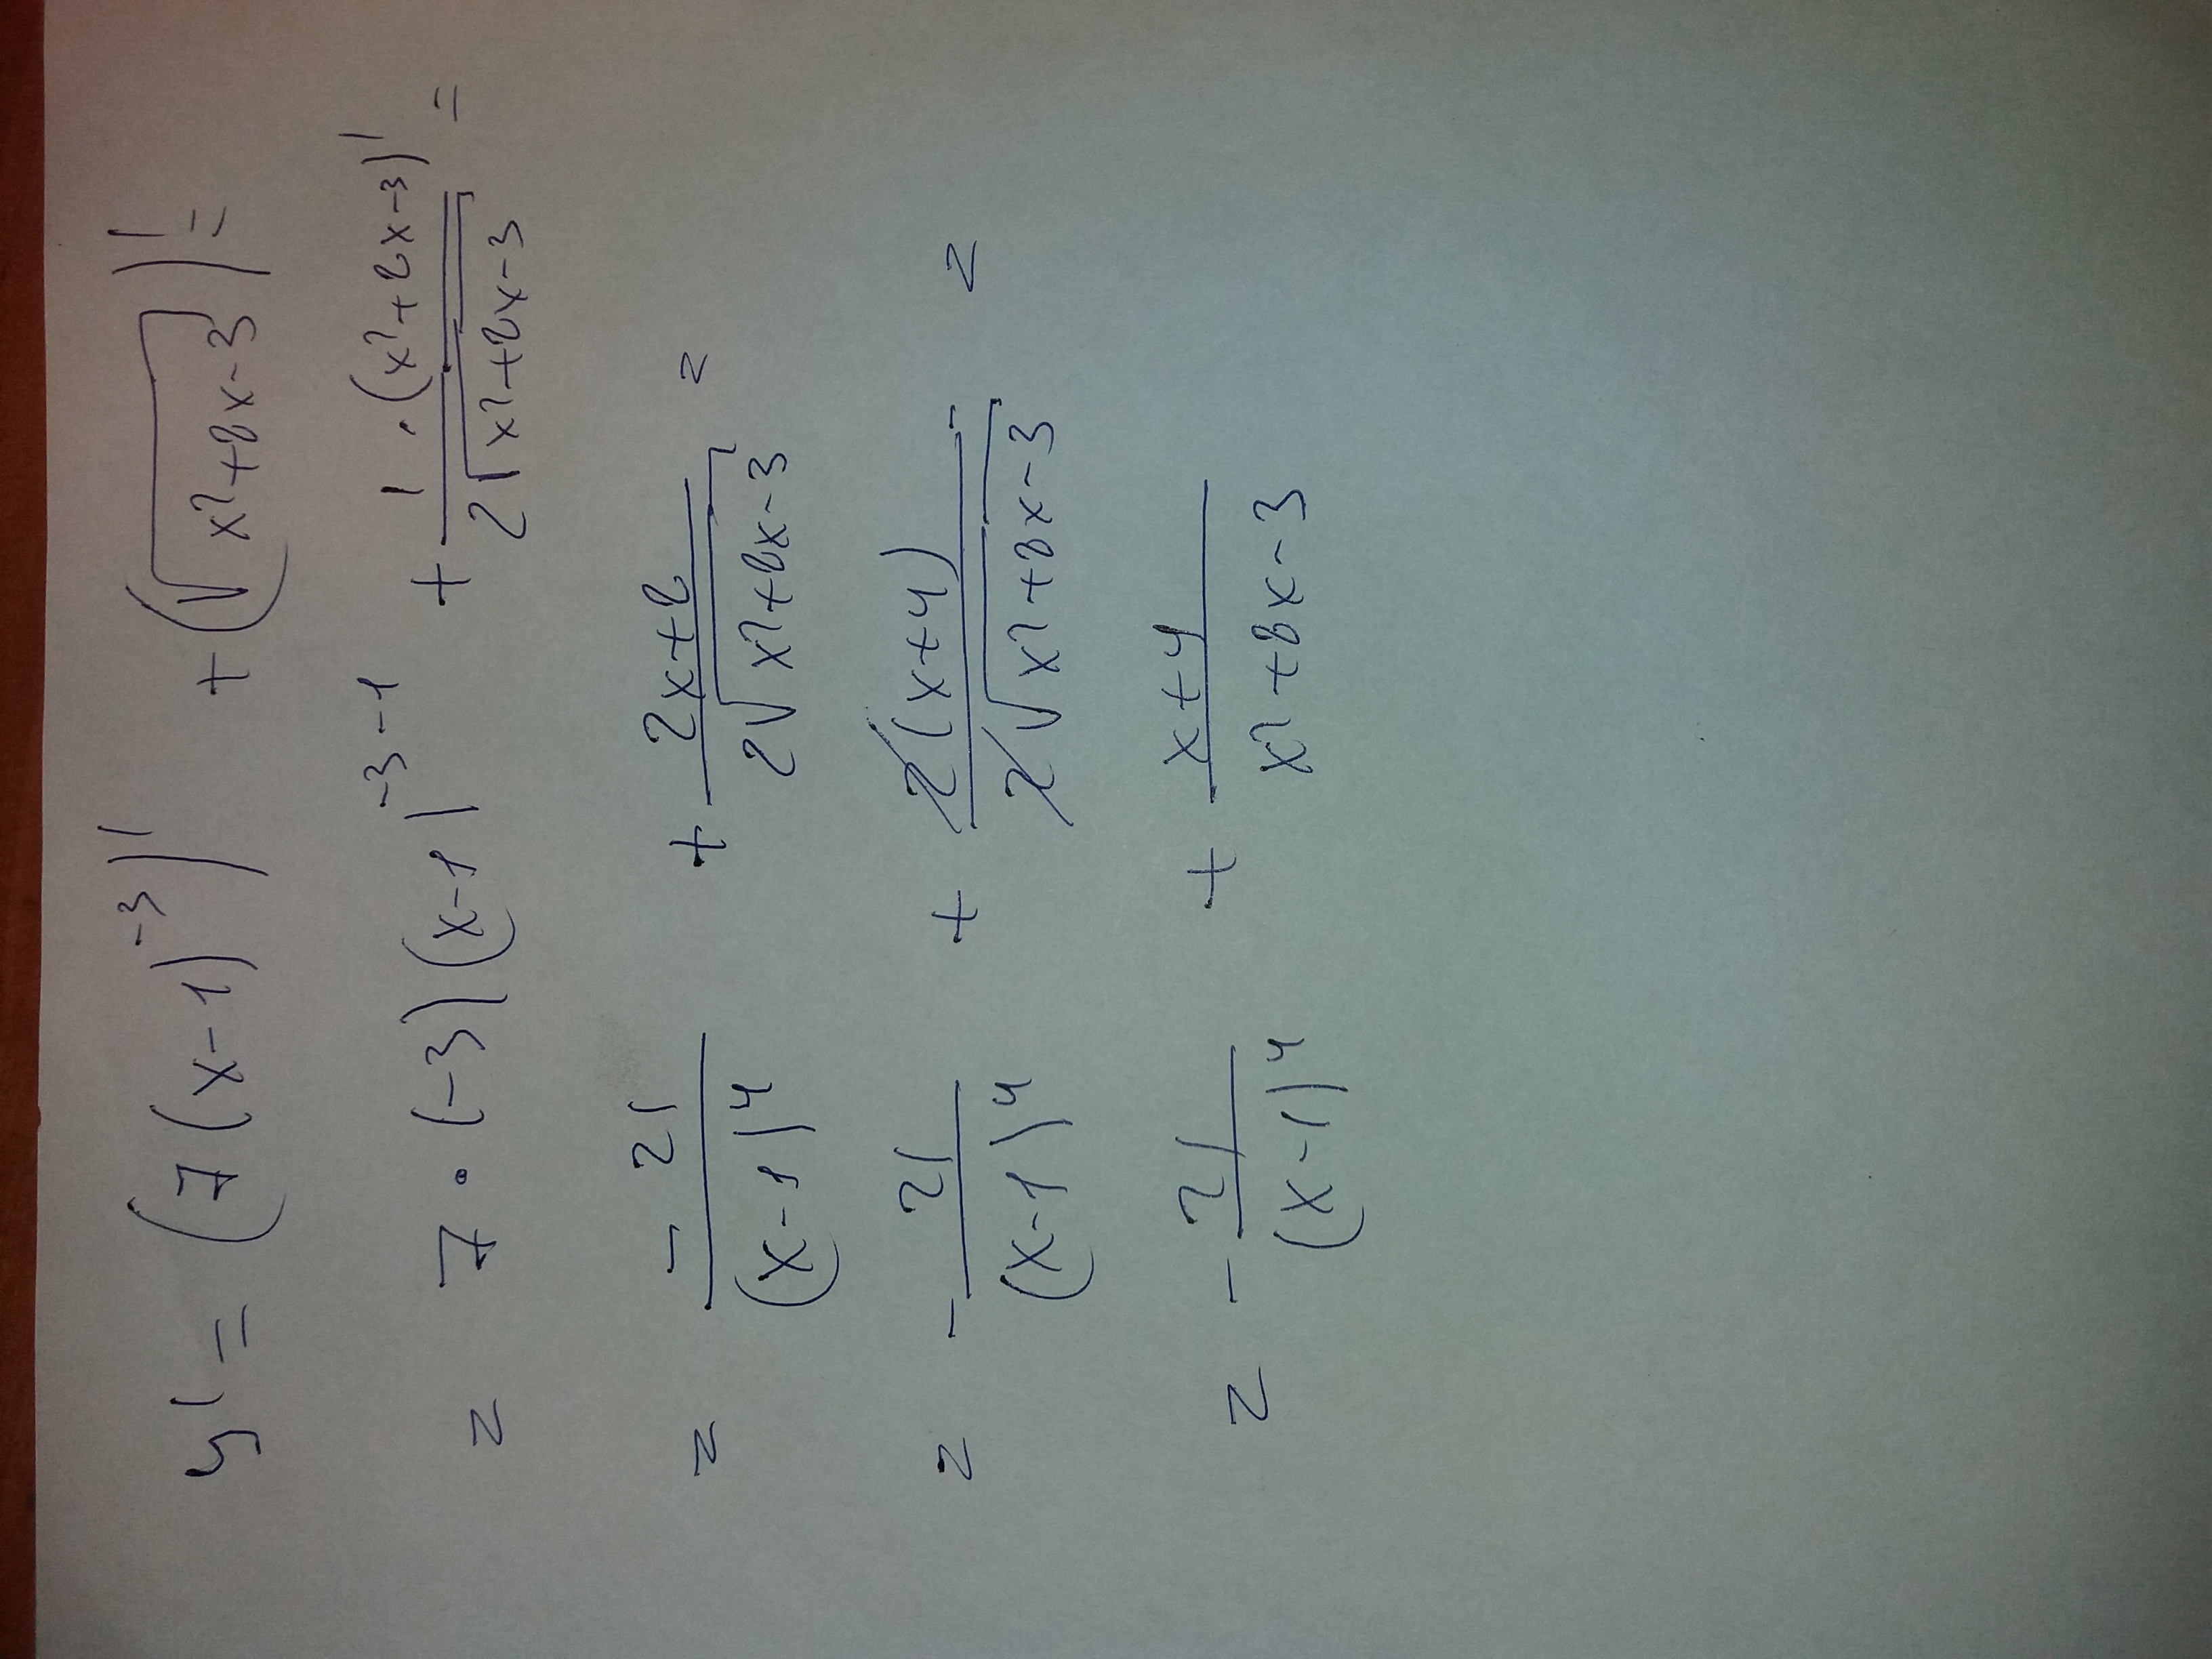 y' = (7(x-1)⁻³)' + (√(x²+8x-3))' =
= 7 · (-3)(x-1)⁻³⁻¹ + 1 · (x²+8x-3)' / 2√(x²+8x-3) =
= -21 / (x-1)⁴ + 2x+8 / 2√(x²+8x-3) =
= - 21 / (x-1)⁴ + 2(x+4) / 2√(x²+8x-3) =
= - 21 / (x-1)⁴ + x+4 / x²+8x-3